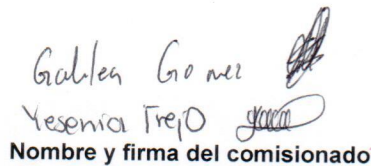 Galilea Gomez
Yesenia Trejo
Nombre y firma del comisionado